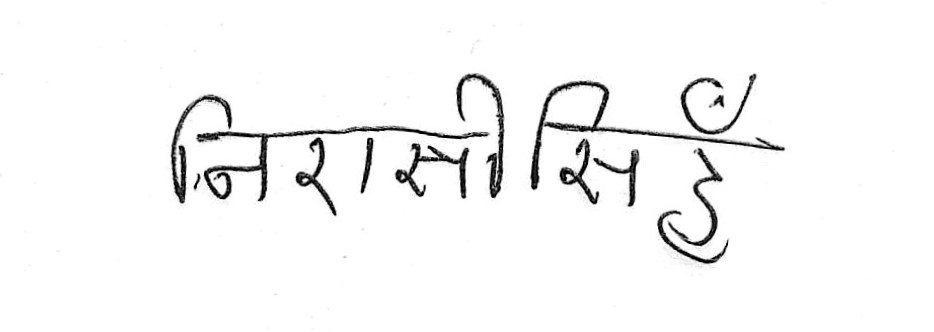 निरासी सिहँ